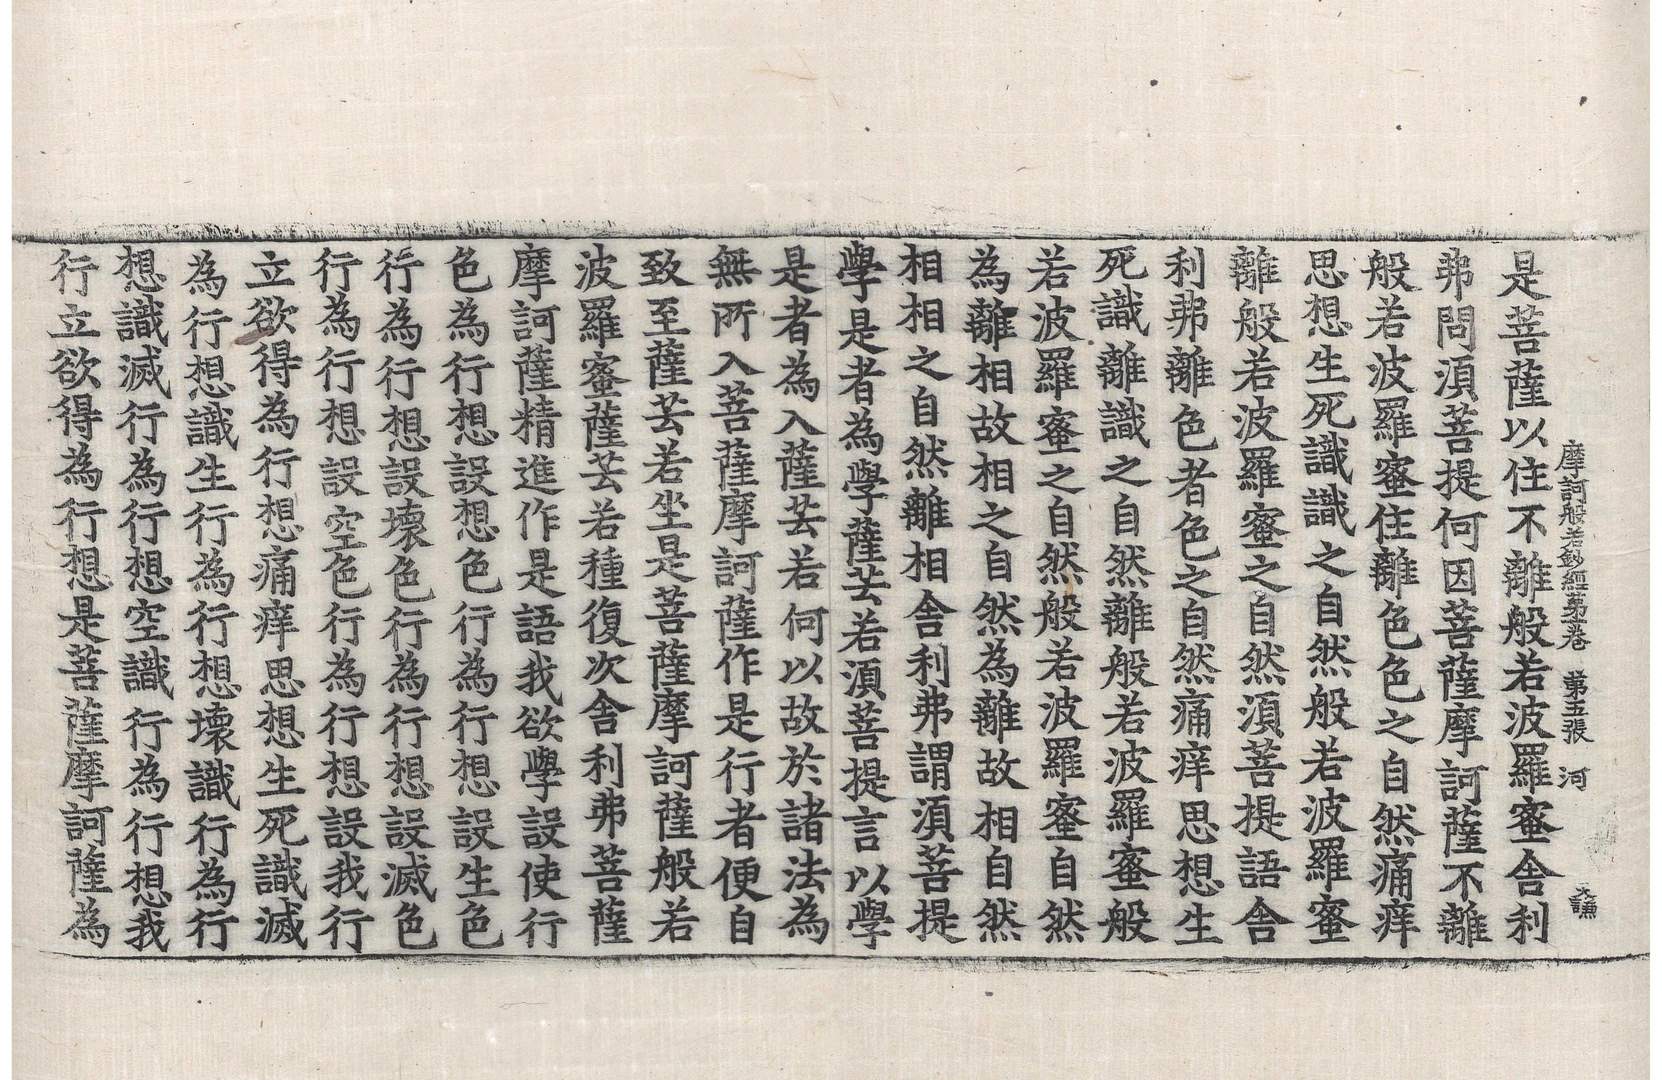 摩訶般若鈔經苐一卷 第五張 河
是菩薩以住不離般若波羅蜜舍利
弗問湏菩提何因菩薩摩訶薩不離
般若波羅蜜住離色色之自然痛痒
思想生死識識之自然般若波羅蜜
離般若波羅蜜之自然湏菩提語舍
利弗離色者色之自然痛痒思想生
死識離識之自然離般若波羅蜜般
若波羅蜜之自然般若波羅蜜自然
為離相故相之自然為離故相自然
相相之自然離相舍利弗謂湏菩提
學是者為學薩芸若湏菩提言以學
是者為入薩芸若何以故於諸法為
無所入菩薩摩訶薩作是行者便自
致至薩芸若坐是菩薩摩訶薩般若
波羅蜜薩芸若種復次舍利弗菩薩
摩訶薩精進作是語我欲學設使行
色為行想設想色行為行想設生色
行為行想設壞色行為行想設滅色
行為行想設空色行為行想設我行
立欲得為行想痛痒思想生死識滅
為行想識生行為行想壞識行為行
想識滅行為行想空識行為行想我
行立欲得為行想是菩薩摩訶薩為